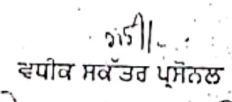 ਵਧੀਕ ਸਕੱਤਰ ਪ੍ਰਸੋਨਲ